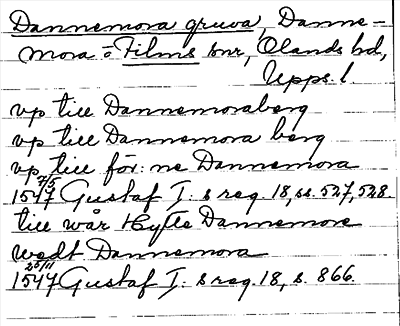 Dannemora gruva, Danne-
mora o Films snr, Olands hd,
Upps. l.
vp till Dannemoraberg
vp till Dannemora berg
vp till för:ne Dannemora
1547 7/5 Gustaf I:s reg. 18, ss. 527, 528.
till wår Hytte Dannemore
wedt Dannemora
1547 25/11 Gustaf I:s reg. 18, s. 866.